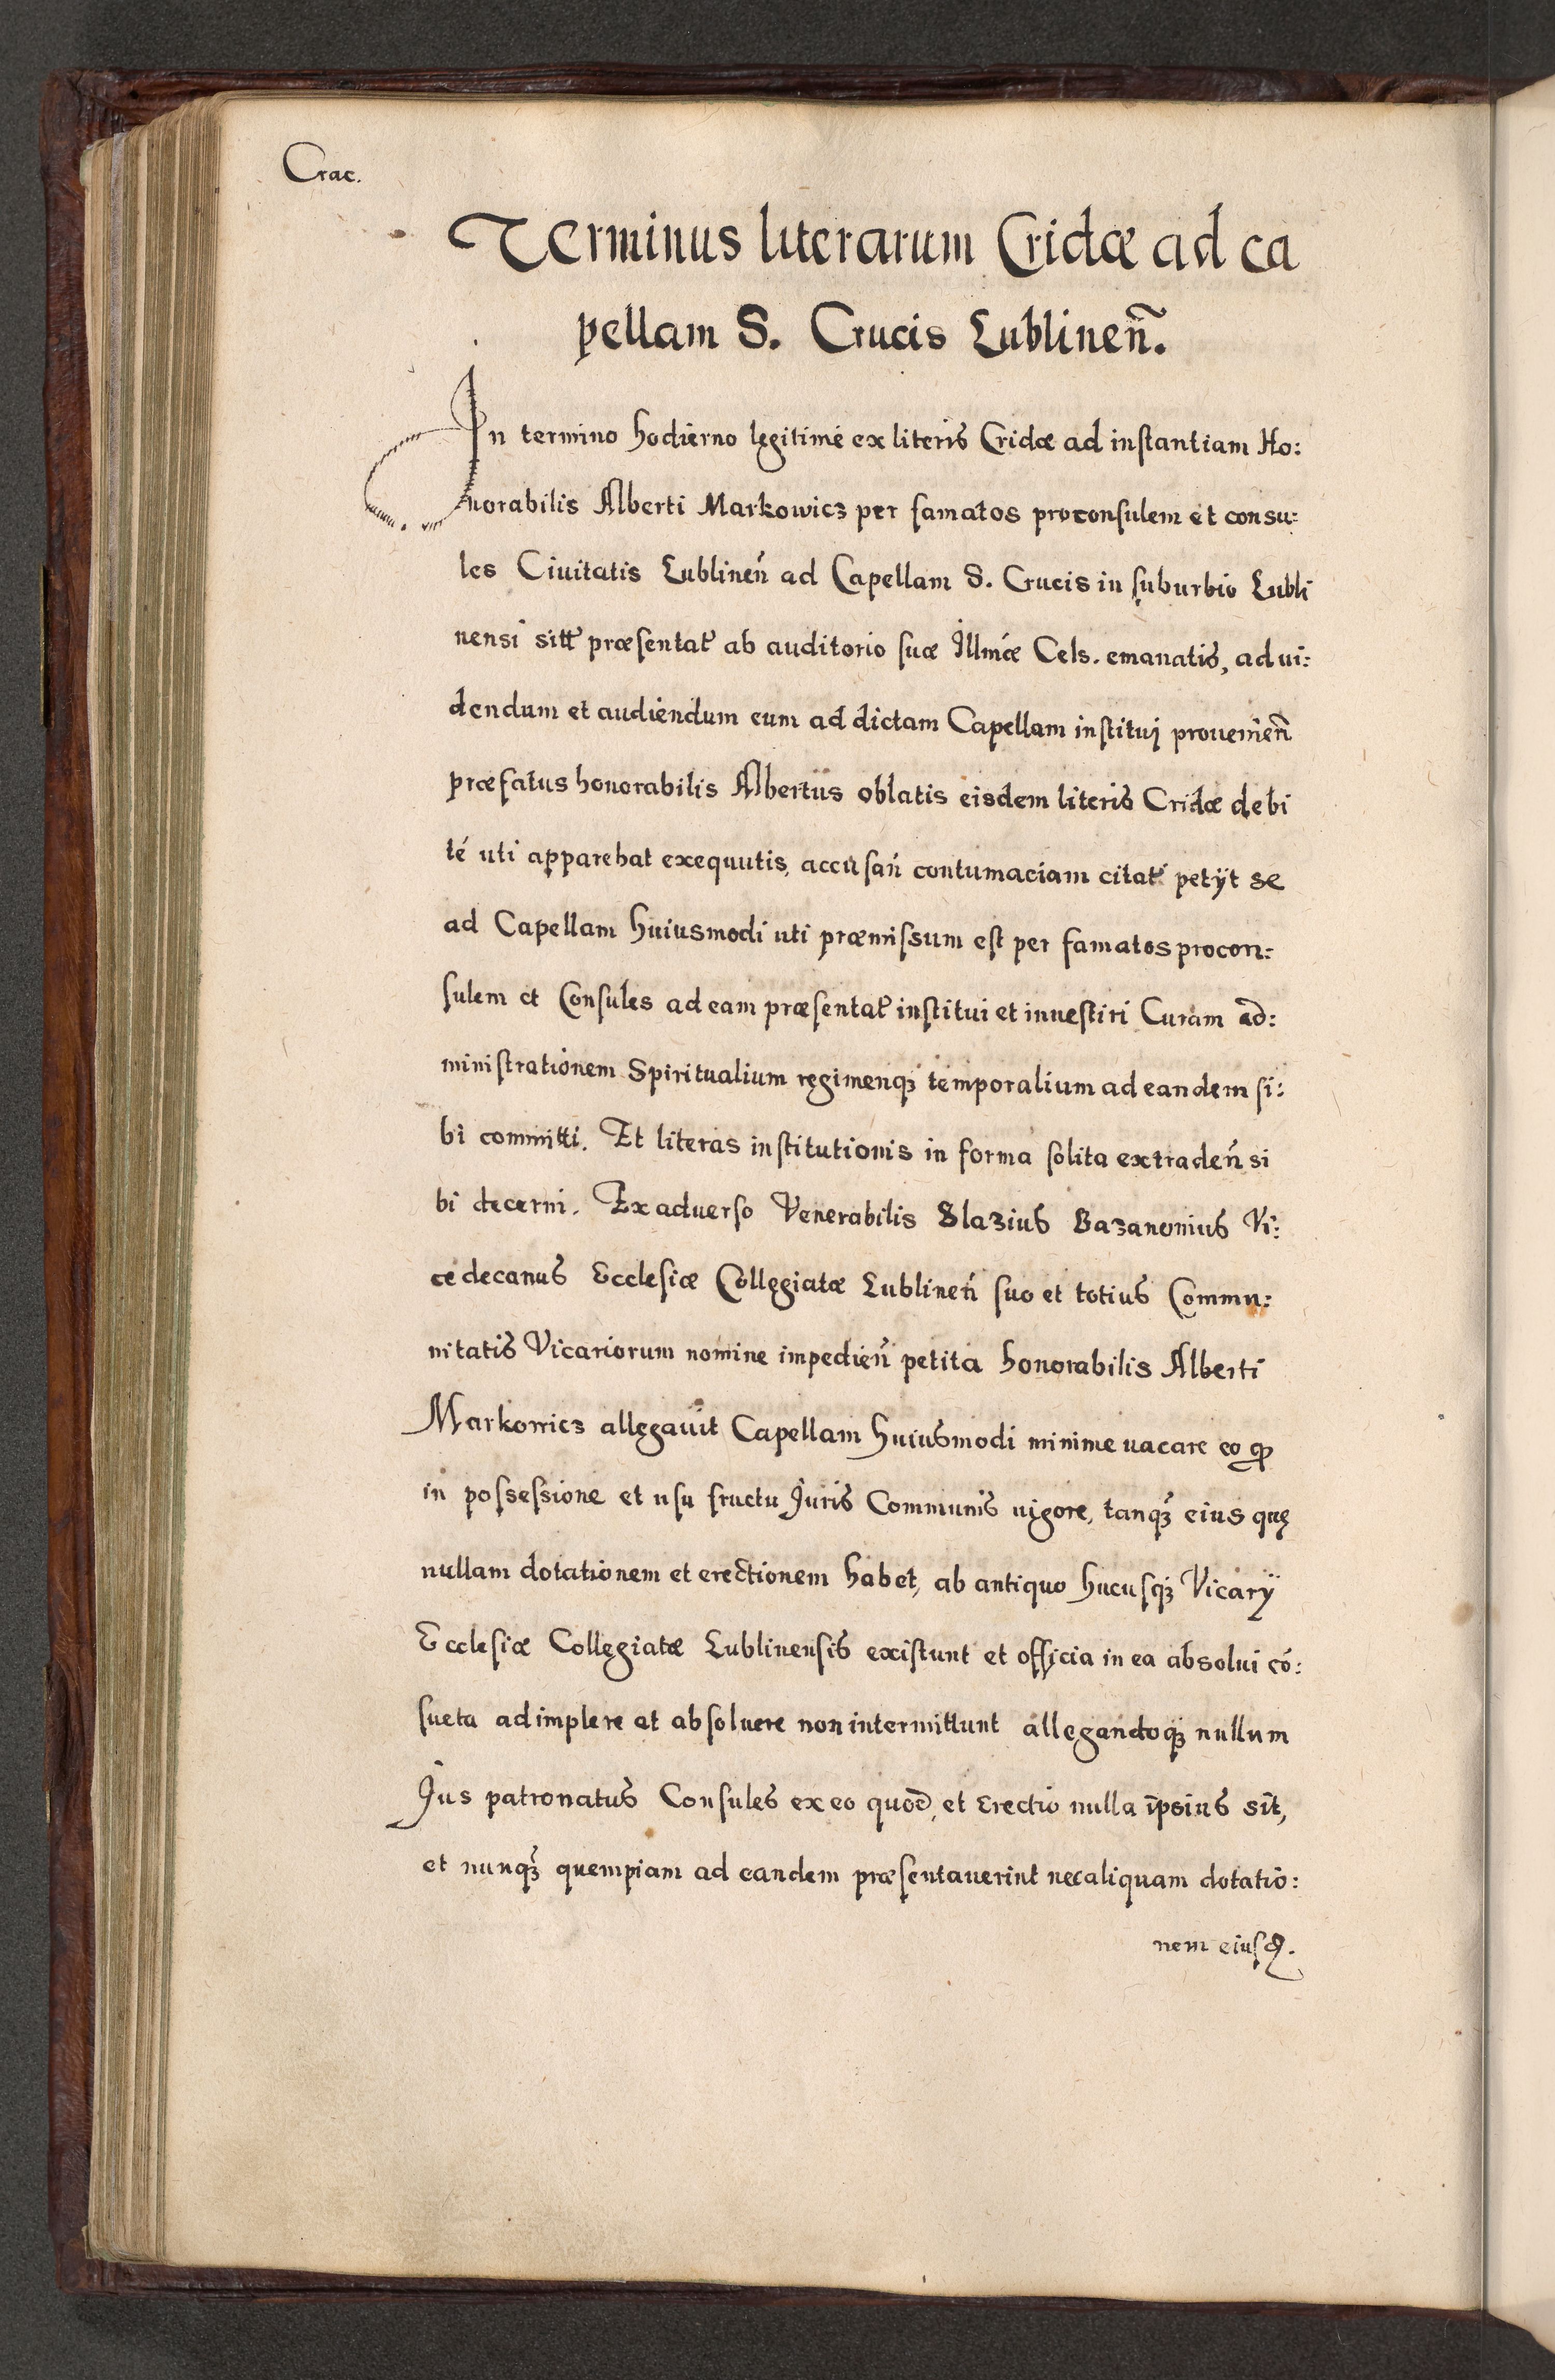 Crac.
Terminus literarum Cridæ ad ca
pellam S. Crucis Lublineñ.
In termino hodierno legitimé ex literis Cridæ ad instantiam Ho:
norabilis Alberti Markowicz per famatos proconsulem et consu:
les Ciuitatis Lublineń ad Capellam S. Crucis in suburbio Lubli
nensi sitt præsentat ab auditorio suæ Illmæ Cels. emanatis, ad ui:
dendum et audiendum eum ad dictam Capellam institui proueniēn
præfatus honorabilis Albertus oblatis eisdem literis Cridæ debi
té uti apparebat exequutis, accusań contumaciam citat petÿt se
ad Capellam huiusmodi uti præmissum est per famatos procon:
sulem et Consules ad eam præsentat institui et inuestiri Curam ad:
ministrationem Spiritualium regimenqȝ temporalium ad eandem si:
bi committi. Et literas institutionis in forma solita extradeń si
bi decerni. Ex aduerso Venerabilis Blazius Bazanonius Vi:
cedecanus Ecclesiæ Collegiatæ Lublineń suo et totius Commu:
nitatis Vicariorum nomine impedień petita honorabilis Alberti
Markowicz allegauit Capellam huiusmodi minime uacare eo ꝙ
in possessione et usu fructu Juris Communis uigore, tanqȝ eius quę
nullam dotationem et erectionem habet, ab antiquo hucusqȝ Vicarÿ
Ecclesiæ Collegiatæ Lublinensis existunt et officia in ea absolui có:
sueta adimplere et absoluere non intermittunt allegandoqȝ nullum
Jus patronatus Consules ex eo quod, et Erectio nulla ipsius sit,
et nunqȝ quempiam ad eandem præsentauerint nec aliquam dotatio:
nem eiusd.